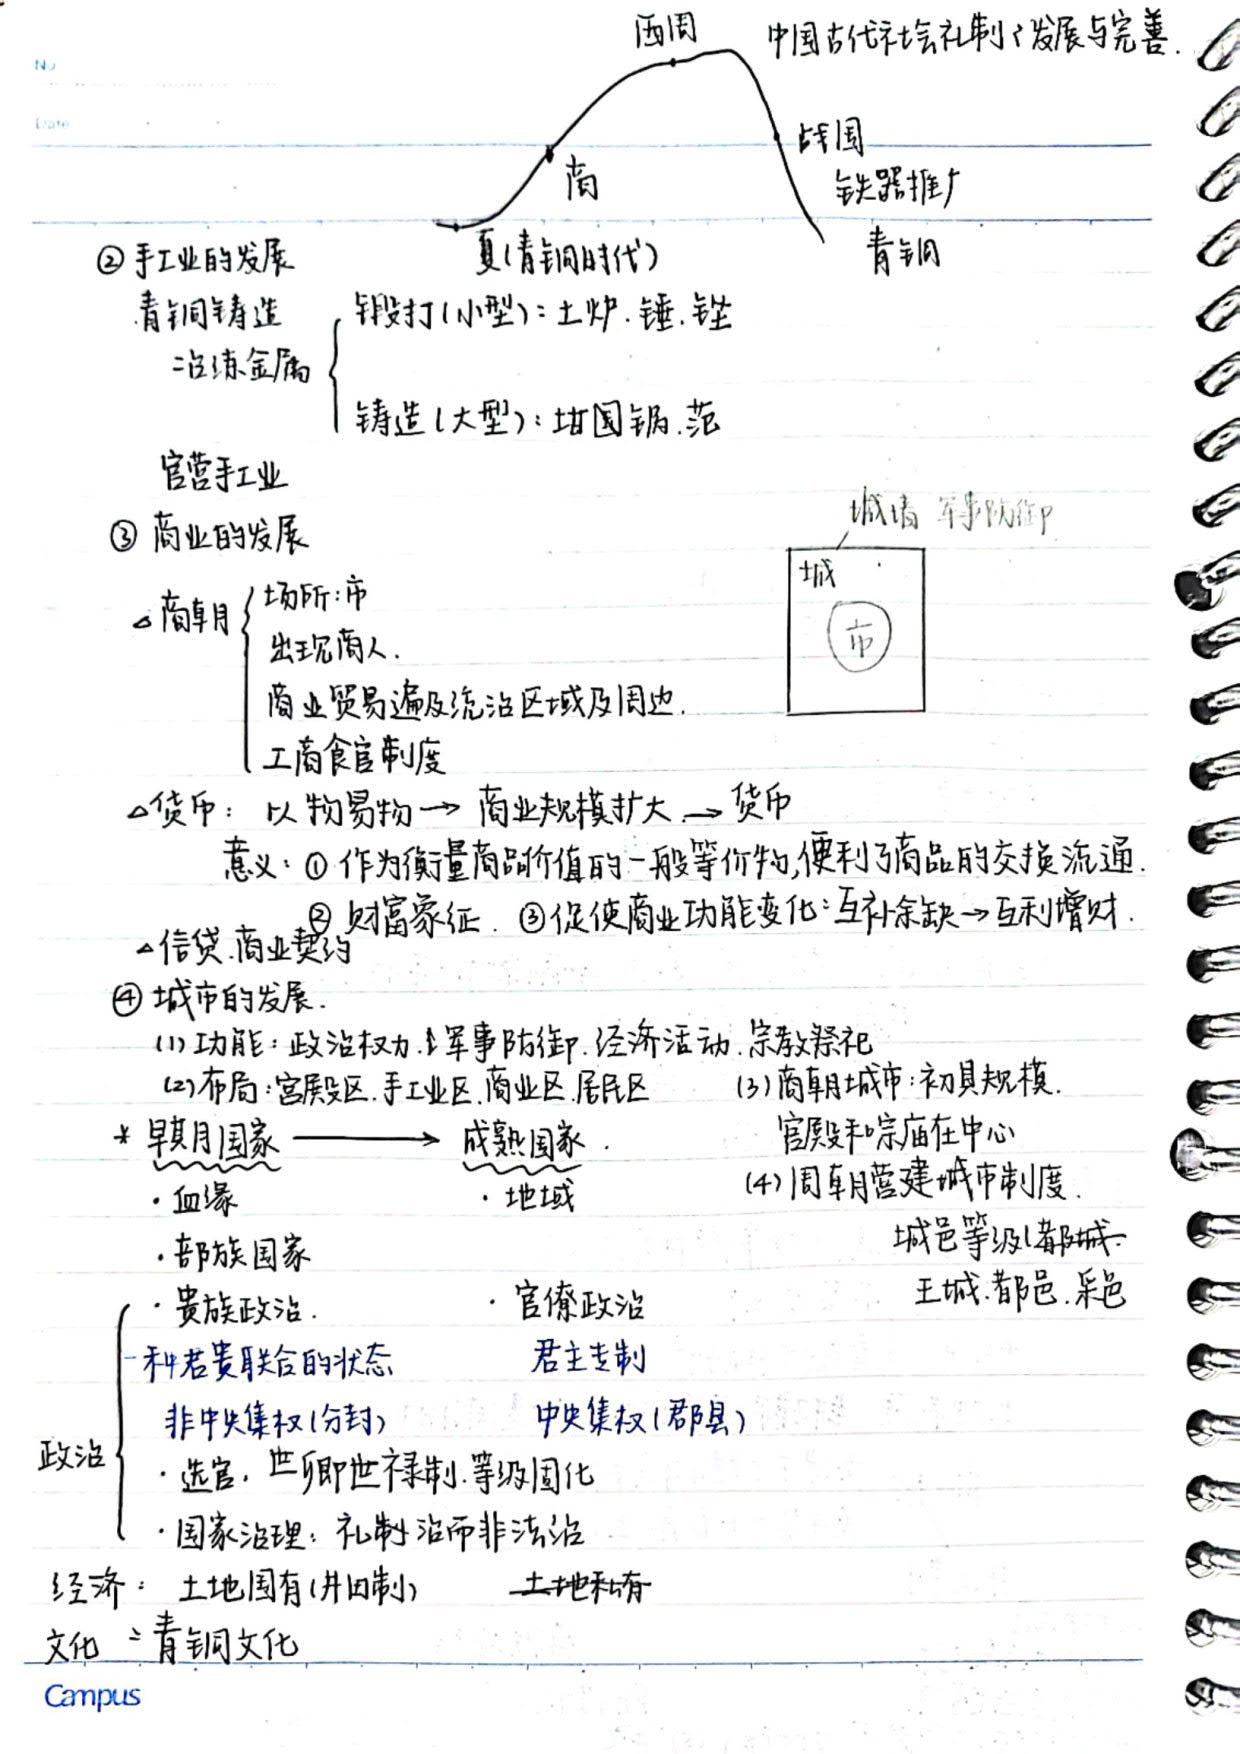 西周 中国古代社会礼制的发展与完善.
No
Date
战国
商 铁器推广
② 手工业的发展 夏(青铜时代) 青铜
青铜铸造 锻打(小型): 土炉.锤.锉
冶炼金属
铸造(大型): 坩埚锅.范
官营手工业
城墙 军事防御
③ 商业的发展
城
△商朝 场所:市
市
出现商人.
商业贸易遍及统治区域及周边.
工商食官制度
△货币: 以物易物→商业规模扩大→货币
意义: ① 作为衡量商品价值的一般等价物,便利了商品的交换流通.
② 财富象征. ③促使商业功能变化:互补余缺→互利增财.
△信贷.商业契约
④ 城市的发展.
(1) 功能: 政治权力.军事防御.经济活动.宗教祭祀
(2) 布局: 宫殿区.手工业区.商业区.居民区 (3) 商朝城市:初具规模.
* 早期国家 → 成熟国家. 宫殿和宗庙在中心
·血缘 ·地域 (4) 周朝营建城市制度.
·部族国家 城邑等级(都城
·贵族政治. ·官僚政治 王城.都邑.采邑
一种君贵联合的状态 君主专制
非中央集权(分封) 中央集权(郡县)
政治 ·选官. 世卿世禄制.等级固化
·国家治理: 礼制治而非法治
经济: 土地国有(井田制) 土地私有
文化: 青铜文化
Campus